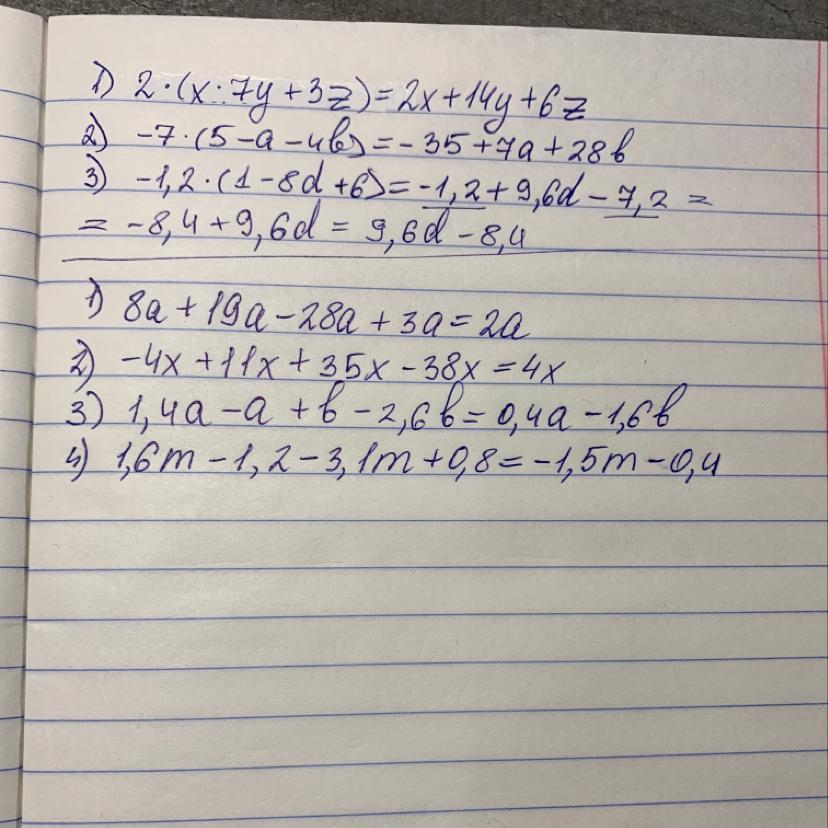 1) 2·(x:7y+3z)=2x+14y+6z
2) -7·(5-a-4b)=-35+7a+28b
3) -1,2·(1-8d+6)=-1,2+9,6d-7,2=
=-8,4+9,6d=9,6d-8,4
1) 8a+19a-28a+3a=2a
2) -4x+11x+35x-38x=4x
3) 1,4a-a+b-2,6b=0,4a-1,6b
4) 1,6m-1,2-3,1m+0,8=-1,5m-0,4